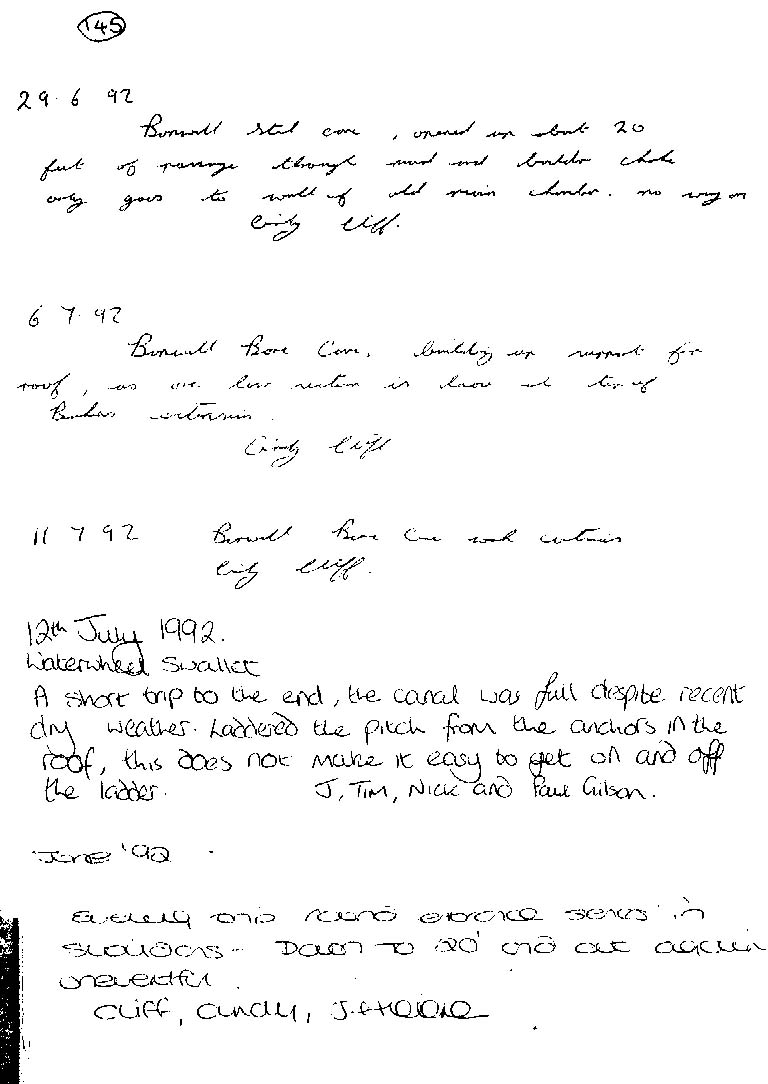 145
29.6 92
cave, opened up about 20
feet of passage through mud and boulder choke
only goes to wall of old main chamber. no way on
Cindy Cliff.
6 7.92
Bone Cave, building up support for
roof, as one low section is loose at top of
Cindy Cliff
11 7 92 Bone Cave work continues
Cindy Cliff.
12th July 1992.
Waterwheel Swallet
A short trip to the end, the canal was full despite recent
dry weather. Laddered the pitch from the anchors in the
roof, this does not make it easy to get on and off
the ladder. J, Tim, Nick and Paul Gilson.
June '92
trip round entrance series in
Swildons - Down to 20' and out again
uneventful.
Cliff, Cindy,